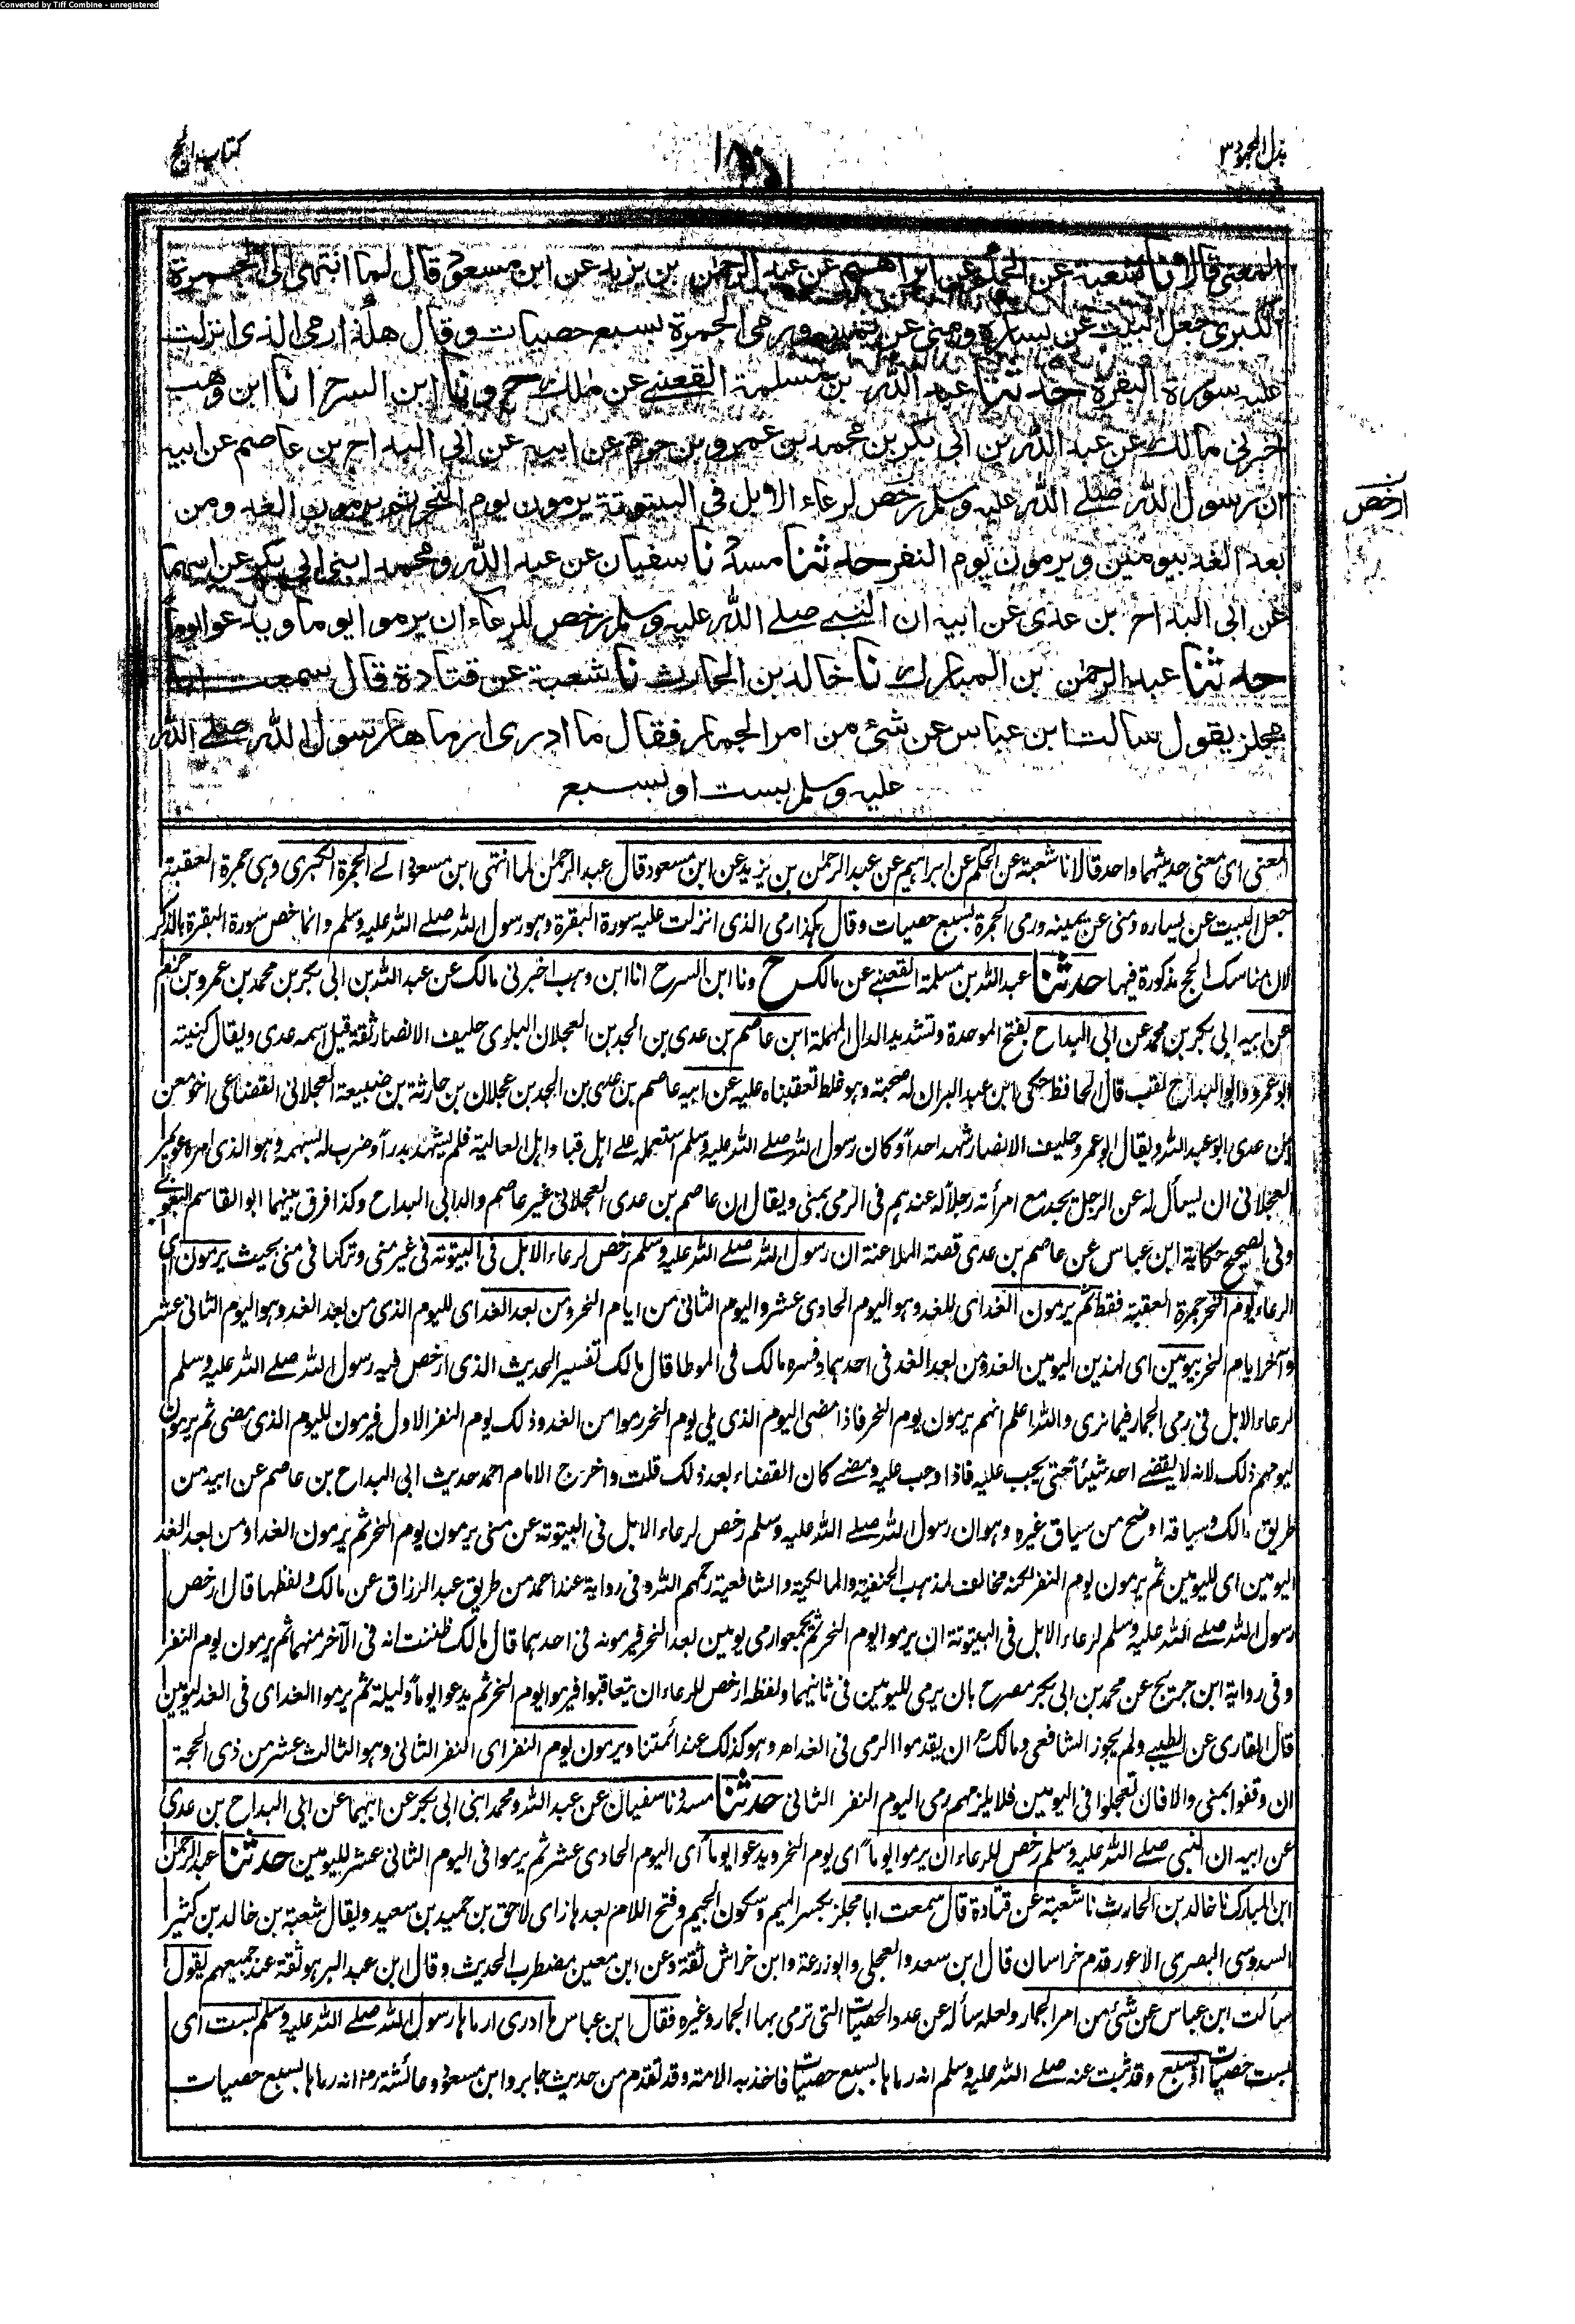 Converted by Tiff Combine - unregistered
بذل المجهود ٣
كتاب الحج
المعنى قالا نا شعبة عن الحكم عن ابراهيم عن عبد الرحمن بن يزيد عن ابن مسعود قال لما انتهى الى الجمرة
الكبرى جعل البيت عن يساره ومنى عن يمينه ورمى الجمرة بسبع حصيات وقال هكذا رمى الذى انزلت
عليه سورة البقرة حدثنا عبد الله بن مسلمة القعنبے عن ملك ح ونا ابن السرح انا ابن وهب
اخبرنى مالك عن عبد الله بن ابى بكر بن محمد بن عمرو بن حزم عن ابيه عن ابى البداح بن عاصم عن ابيه
ان رسول الله صلے الله عليه وسلم رخص لرعاء الابل فى البيتوتة يرمون يوم النحر ثم يرمون الغد ومن
ارخص
بعد الغد بيومين ويرمون يوم النفر حدثنا مسدد نا سفيان عن عبد الله ومحمد ابنى ابى بكر عن ابيهما
عن ابى البداح بن عدى عن ابيه ان النبے صلے الله عليه وسلم رخص للرعاء ان يرموا يوما ويدعوا يوما
حدثنا عبد الرحمن بن المبارك نا خالد بن الحارث نا شعبة عن قتادة قال سمعت ابا
مجلز يقول سالت ابن عباس عن شئ من امر الجمار فقال ما ادرى ارماها رسول الله صلے الله
عليه وسلم بست او بسبع
المعنى اى معنى حديثهما واحد قالا نا شعبة عن الحكم عن ابراهيم عن عبد الرحمن بن يزيد عن ابن مسعود قال عبد الرحمن لما انتهى ابن مسعود الے الجمرة الكبرى وهى جمرة العقبة
جعل البيت عن يساره ومنى عن يمينه ورمى الجمرة بسبع حصيات وقال هكذا رمى الذى انزلت عليه سورة البقرة وهو رسول الله صلے الله عليه وسلم وانما خص سورة البقرة بالذكر
لان مناسك الحج مذكورة فيها حدثنا عبد الله بن مسلمة القعنبے عن مالك ح ونا ابن السرح انا ابن وهب اخبرنى مالك عن عبد الله بن ابى بكر بن محمد بن عمرو بن حزم
عن ابيه ابى بكر بن محمد عن ابى البداح بفتح الموحدة وتشديد الدال المهملة ابن عاصم بن عدى بن الجد بن العجلان البلوى حليف الانصار ثقة قيل اسمه عدى ويقال كنيته
ابو عمرو وابو البداح لقب قال الحافظ حكى ابن عبد البر ان له صحبة وهو غلط تعقبناه عليه عن ابيه عاصم بن عدى بن الجد بن عجلان بن حارثة بن ضبيعة العجلانى القضاعى اخو معن
ابن عدى ابو عبد الله ويقال ابو عمرو حليف الانصار شهد احداً وكان رسول الله صلے الله عليه وسلم استعمله على اهل قباء واهل العالية فلم يشهد بدراً وضرب له بسهمه وهو الذى امره عويمر
العجلانى ان يسأل له عن الرجل يجد مع امرأته رجلاً له عندهم فى الرمى بمنى ويقال ان عاصم بن عدى العجلانى غير عاصم والد ابى البداح وكذا فرق بينهما ابو القاسم البغوى
وفى الصحيح حكاية ابن عباس عن عاصم بن عدى قصة الملاعنة ان رسول الله صلے الله عليه وسلم رخص لرعاء الابل فى البيتوتة فى غير منى وتركها فى منى بحيث يرمون اى
الرعاء يوم النحر جمرة العقبة فقط ثم يرمون الغد اى للغد وهو اليوم الحادى عشر واليوم الثانى من ايام النحر ومن بعد الغد اى لليوم الذى من بعد الغد وهو اليوم الثانى عشر
وآخر ايام النحر بيومين اى لهذين اليومين الغد ومن بعد الغد فى احدهما وفسره مالك فى الموطا قال مالك تفسير الحديث الذى ارخص فيه رسول الله صلے الله عليه وسلم
لرعاء الابل فى رمى الجمار فيما نرى والله اعلم انهم يرمون يوم النحر فاذا مضى اليوم الذى يلى يوم النحر رموا من الغد وذلك يوم النفر الاول فيرمون لليوم الذى مضى ثم يرمون
ليومهم ذلك لانه لا يقضے احد شيئاً حتى يجب عليه فاذا وجب عليه ومضے كان القضاء بعد ذلك قلت واخرج الامام احمد حديث ابى البداح بن عاصم عن ابيه من
طريق مالك وسياقه اوضح من سياق غيره وهو ان رسول الله صلے الله عليه وسلم رخص لرعاء الابل فى البيتوتة عن منى يرمون يوم النحر ثم يرمون الغد او من بعد الغد
اليومين اى لليومين ثم يرمون يوم النفر لكنه مخالف لمذهب الحنفية والمالكية والشافعية رحمهم الله وفى رواية عند احمد من طريق عبد الرزاق عن مالك ولفظها قال ارخص
رسول الله صلے الله عليه وسلم لرعاء الابل فى البيتوتة ان يرموا يوم النحر ثم يجمعوا رمى يومين بعد النحر فيرمونه فى احدهما قال مالك ظننت انه فى الآخر منهما ثم يرمون يوم النفر
وفى رواية ابن جريج عن محمد بن ابى بكر مصرح بان يرمى لليومين فى ثانيهما ولفظه ارخص للرعاء ان يتعاقبوا فيرموا يوم النحر ثم يدعوا يوماً وليلة ثم يرموا الغد اى فى الغد ليومين
قال القارى عن الطيبے ولم يجوز الشافعى ومالك ان يقدموا الرمى فى الغد اھ وهو كذلك عند ائمتنا ويرمون يوم النفر اى النفر الثانى وهو الثالث عشر من ذى الحجة
ان وقفوا بمنى والا فان تعجلوا فى اليومين فلا يلزمهم رمى اليوم النفر الثانى حدثنا مسدد نا سفيان عن عبد الله ومحمد ابنى ابى بكر عن ابيهما عن ابى البداح بن عدى
عن ابيه ان النبى صلے الله عليه وسلم رخص للرعاء ان يرموا يوماً اى يوم النحر ويدعوا يوماً اى اليوم الحادى عشر ثم يرموا فى اليوم الثانى عشر لليومين حدثنا عبد الرحمن
ابن المبارك نا خالد بن الحارث نا شعبة عن قتادة قال سمعت ابا مجلز بكسر الميم وسكون الجيم وفتح اللام بعدها زاى لاحق بن حميد بن سعيد ويقال شعبة بن خالد بن كثير
السدوسى البصرى الاعور قدم خراسان قال ابن سعد والعجلى وابو زرعة وابن خراش ثقة وعن ابن معين مضطرب الحديث وقال ابن عبد البر هو ثقة عند جميعهم يقول
سألت ابن عباس عن شئ من امر الجمار ولعله سأله عن عدد الحصيات التى ترمى بها الجمار وغيره فقال ابن عباس ما ادرى ارماها رسول الله صلے الله عليه وسلم بست اى
بست حصيات او بسبع وقد ثبت عنه صلے الله عليه وسلم انه رماها بسبع حصيات فاخذ به الامة وقد تقدم من حديث جابر وابن مسعود وعائشة رض انه رماها بسبع حصيات